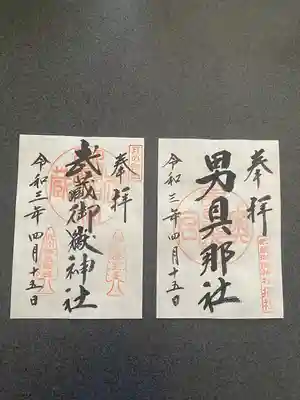 奉拝
男具那社
令和三年四月十五日
奉拝
武蔵御嶽神社
令和三年四月十五日